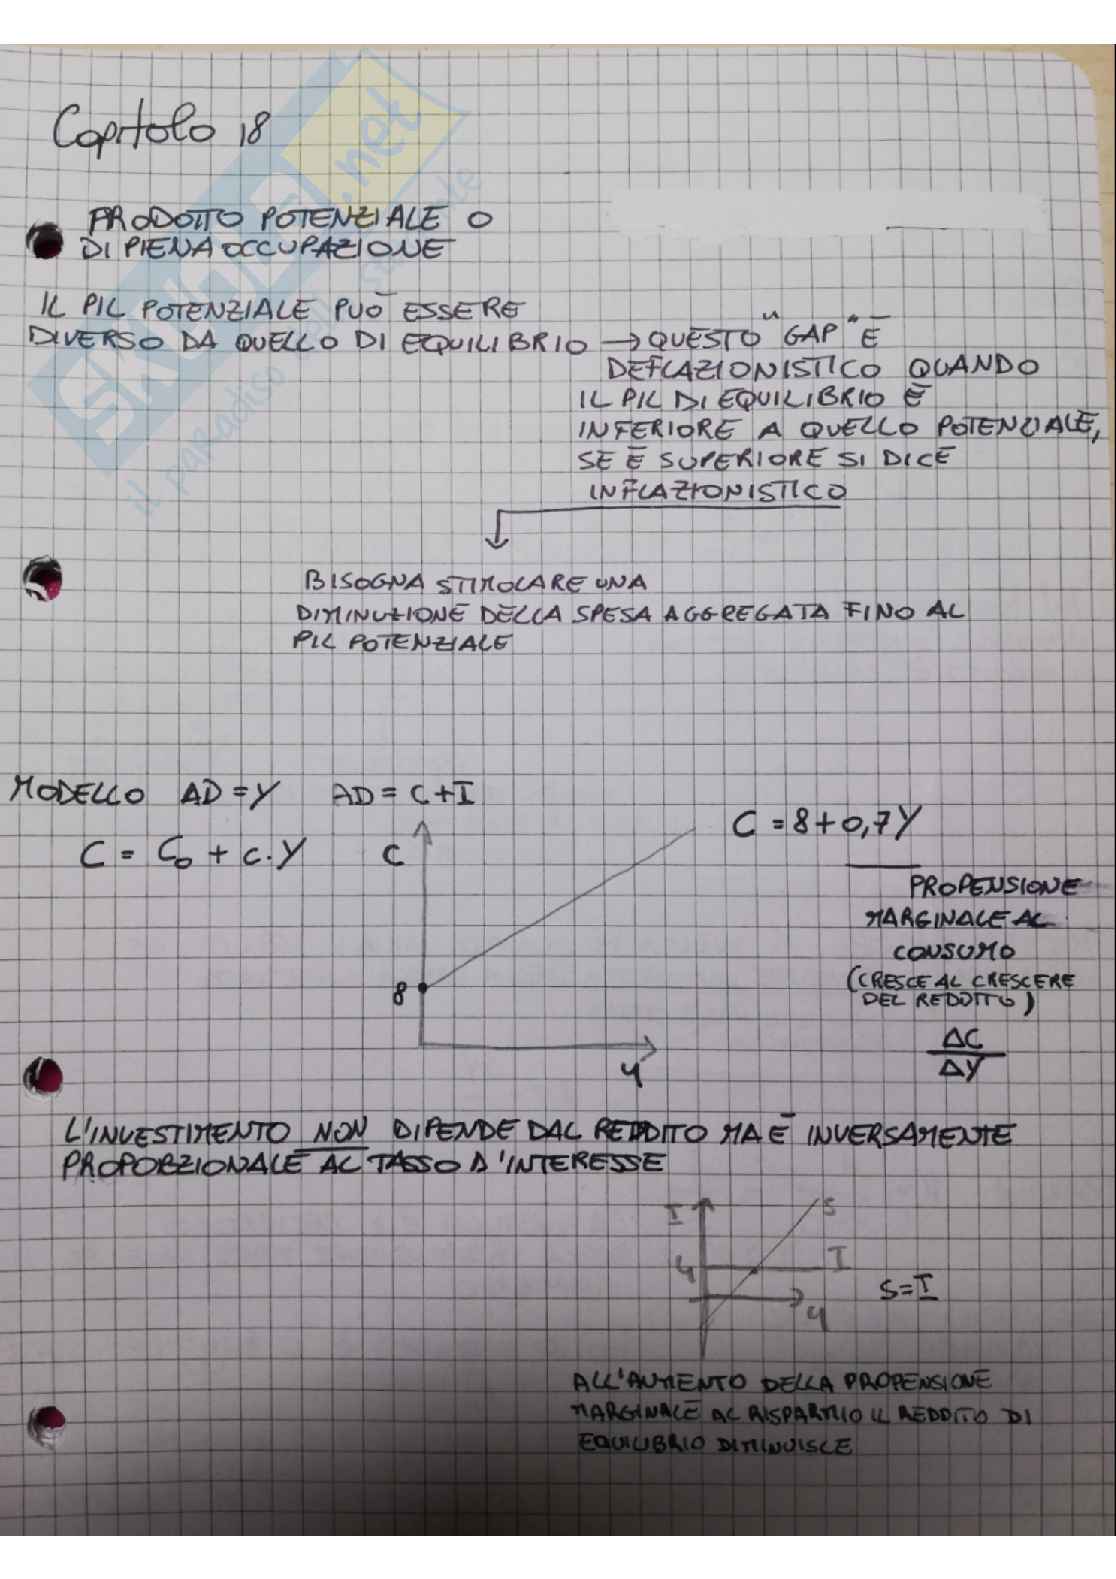 Capitolo 18
PRODOTTO POTENZIALE O
DI PIENA OCCUPAZIONE
IL PIL POTENZIALE PUÒ ESSERE
DIVERSO DA QUELLO DI EQUILIBRIO → QUESTO "GAP" È
DEFLAZIONISTICO QUANDO
IL PIL DI EQUILIBRIO È
INFERIORE A QUELLO POTENZIALE,
SE È SUPERIORE SI DICE
INFLAZIONISTICO
BISOGNA STIMOLARE UNA
DIMINUZIONE DELLA SPESA AGGREGATA FINO AL
PIL POTENZIALE
MODELLO AD = Y AD = C + I
C = C₀ + c · Y
C
C = 8 + 0,7Y
PROPENSIONE
MARGINALE AL
CONSUMO
(CRESCE AL CRESCERE
DEL REDDITO)
8
ΔC
ΔY
Y
L'INVESTIMENTO NON DIPENDE DAL REDDITO MA È INVERSAMENTE
PROPORZIONALE AL TASSO D'INTERESSE
I S
4 I
S = I
Y
ALL'AUMENTO DELLA PROPENSIONE
MARGINALE AL RISPARMIO IL REDDITO DI
EQUILIBRIO DIMINUISCE
SKUOLA.net
il paradiso dello studente